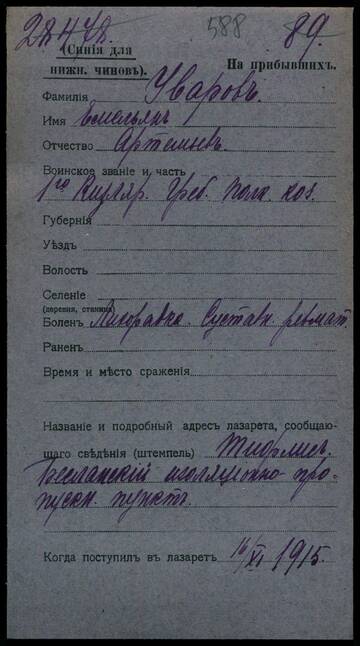 22472. 588 89.
(Синія для
нижн. чиновъ). На прибывшихъ.
Фамилія Уваровъ.
Имя Емельянъ
Отчество Артемьевъ.
Воинское званіе и часть
1го Кизляр. Греб. Полк. каз.
Губернія
Уѣздъ
Волость
Селеніе
(деревня, станица)
Боленъ Лихорадка. Сустав. ревмат.
Раненъ
Время и мѣсто сраженія
Названіе и подробный адресъ лазарета, сообщаю-
щаго свѣдѣнія (штемпель) Тифлисъ.
Бесланскій изоляціонно-про-
пускн. пунктъ.
Когда поступилъ въ лазаретъ 16/XI 1915.